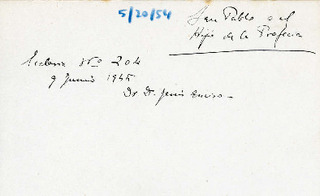 5/20/54
San Pablo o el
Hijo de la Profecía
Ecclesia Nº 204
9 Junio 1945
Dr. D. Jesús Enciso